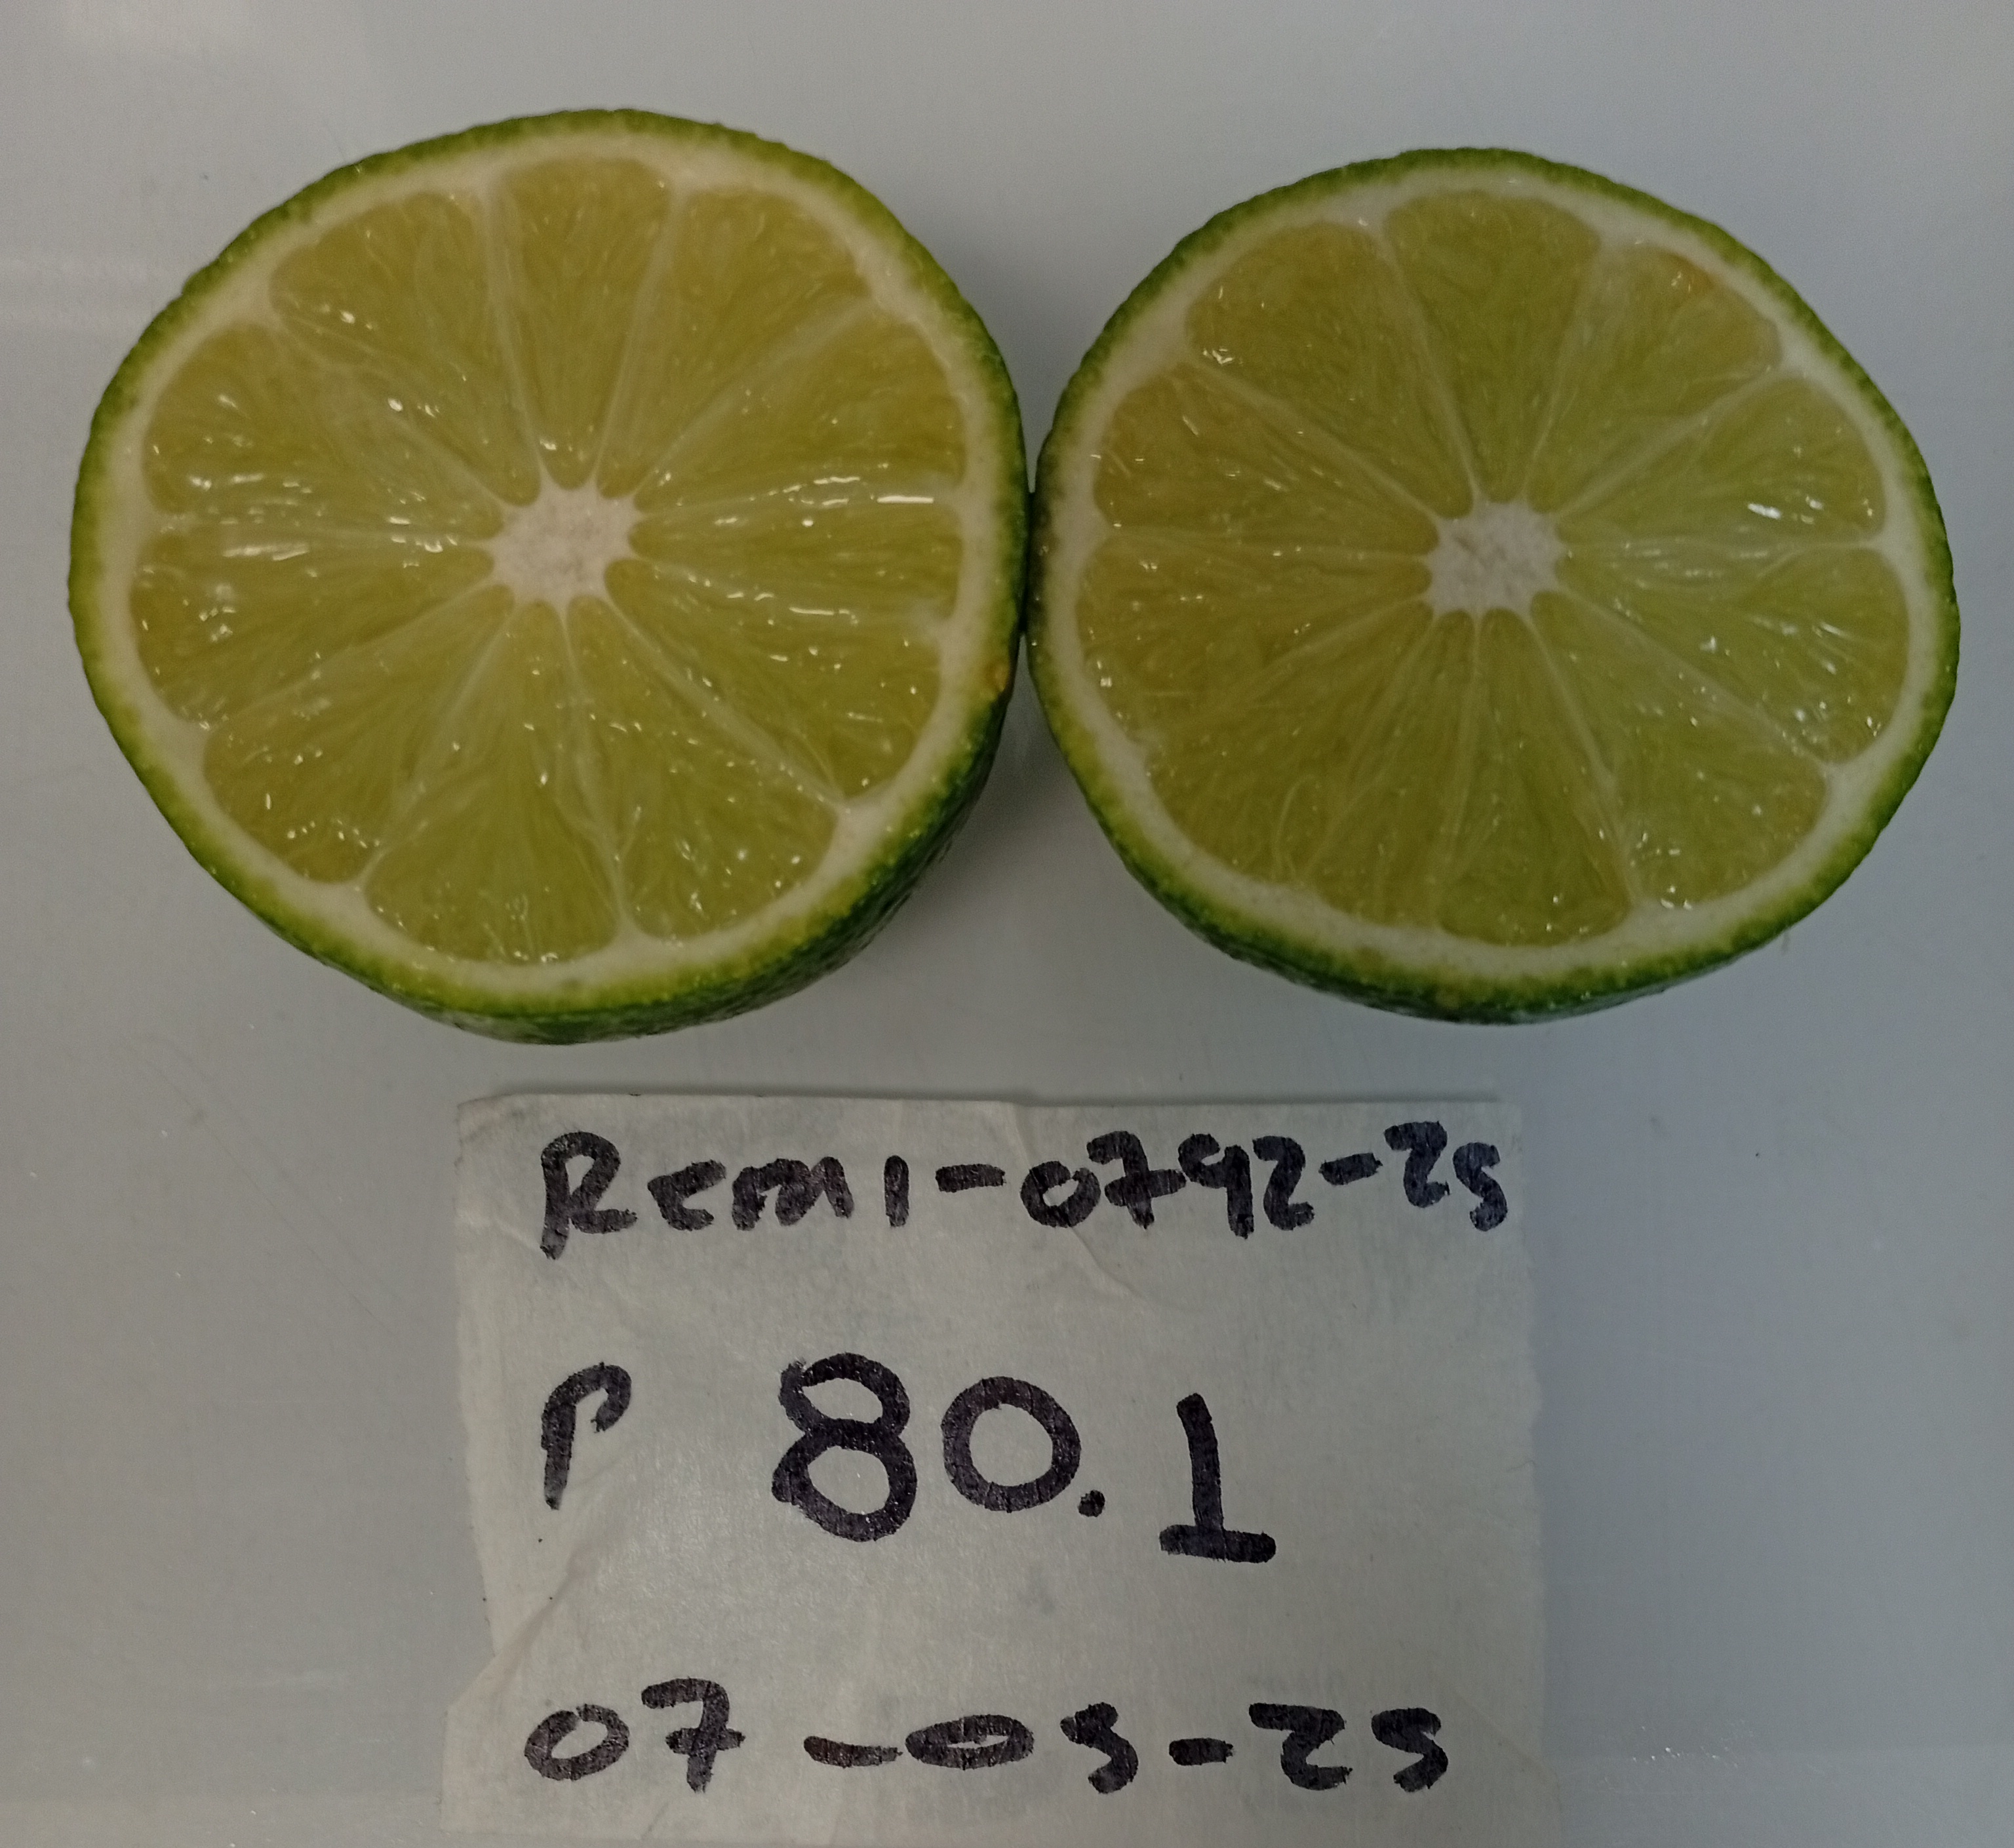 Remi-0792-25
P 80.1
07-05-25